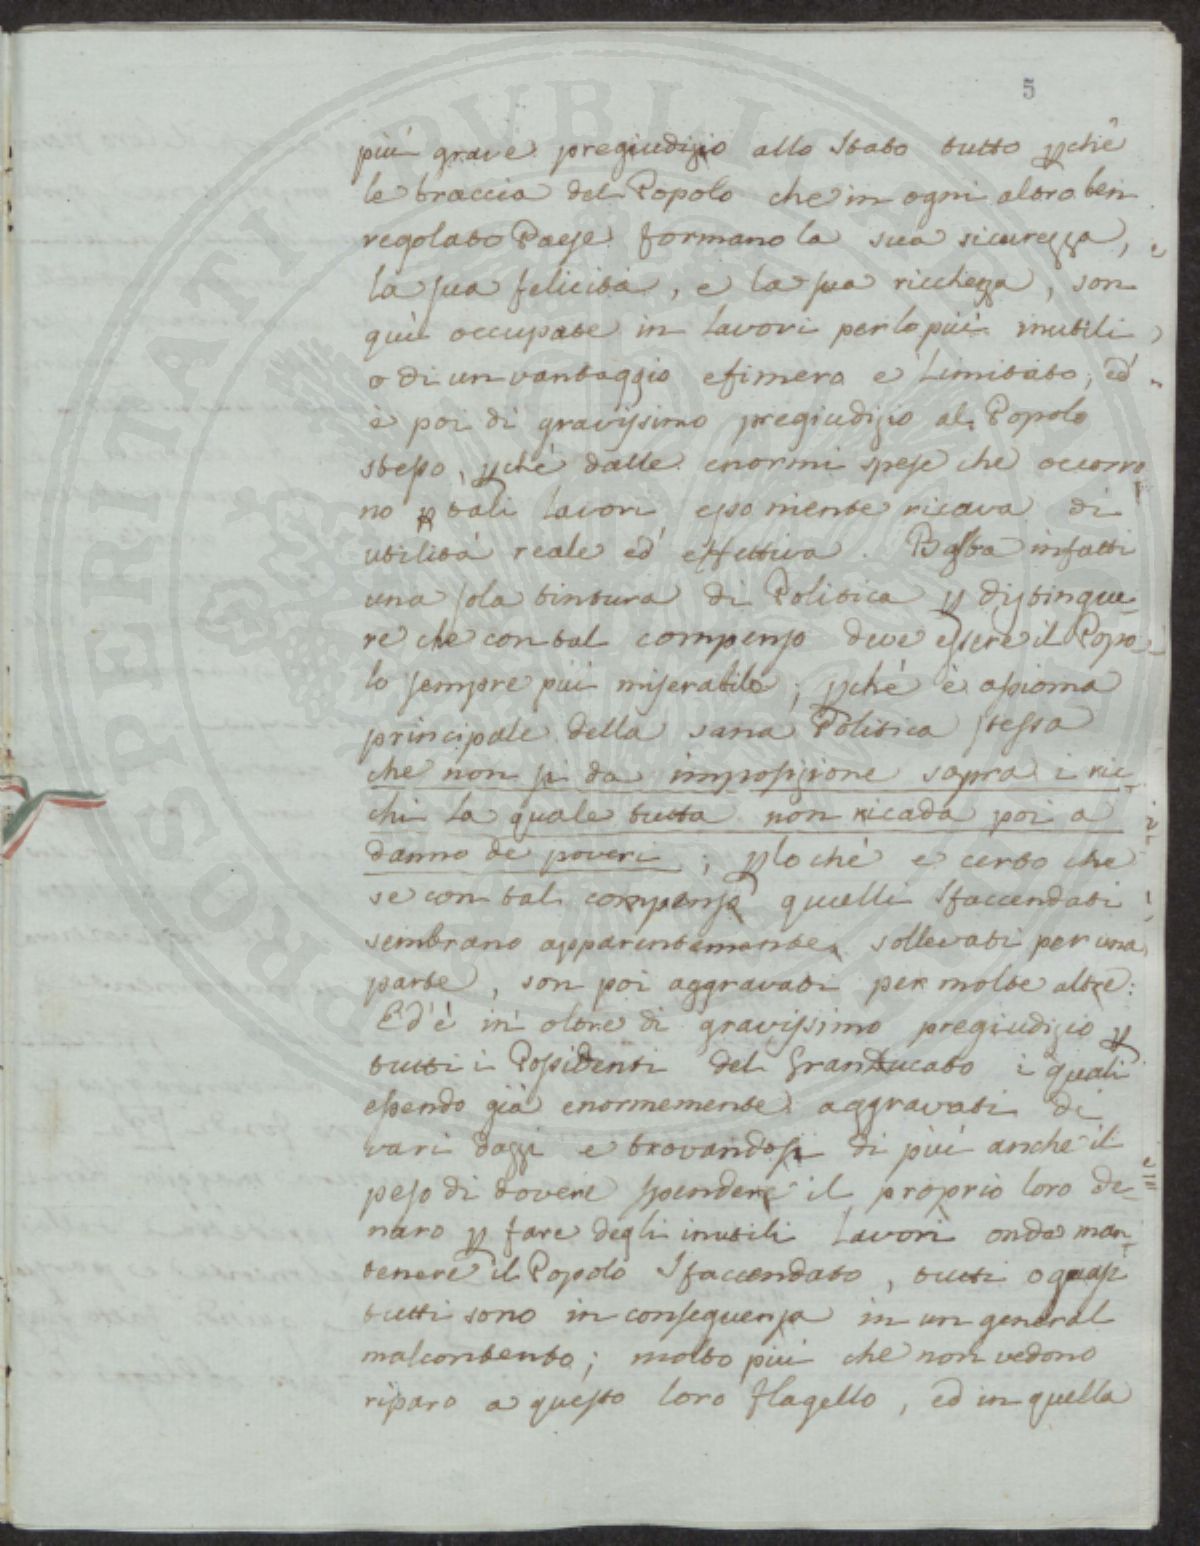 5
più grave pregiudizio allo Stato tutto pchè
le braccia del Popolo che in ogni altro ben
regolato Paese formano la sua sicurezza,
la sua felicità, e la sua ricchezza, son
quì occupate in lavori per lo più inutili
o di un vantaggio efimero e limitato; ed
è poi di gravissimo pregiudizio al Popolo
stesso, pchè dalle enormi spese che occorro
no p tali lavori esso niente ricava di
utilità reale ed effettiva. Basta infatti
una sola tintura di Politica p distingue-
re che con tal compenso deve essere il Popo-
lo sempre più miserabile; pchè è assioma
principale della sana Politica stessa
che non si da imposizione sopra i ric-
chi la quale tutta non ricada poi a
danno de poveri; plochè e certo che
se con tal compenso quelli Sfaccendati
sembrano apparentemente sollevati per una
parte, son poi aggravati per molte altre:
Ed è in oltre di gravissimo pregiudizio p
tutti i Possidenti del GranDucato i quali
essendo già enormemente aggravati di
vari dazzi e trovandosi di più anche il
peso di dovere spendere il proprio loro de-
naro p fare degli inutili lavori onde man-
tenere il Popolo Sfaccendato, tutti o quasi
tutti sono in conseguenza in un general
malcontento; molto più che non vedono
riparo a questo loro flagello, ed in quella
PROSPERITATI PVBLICAE